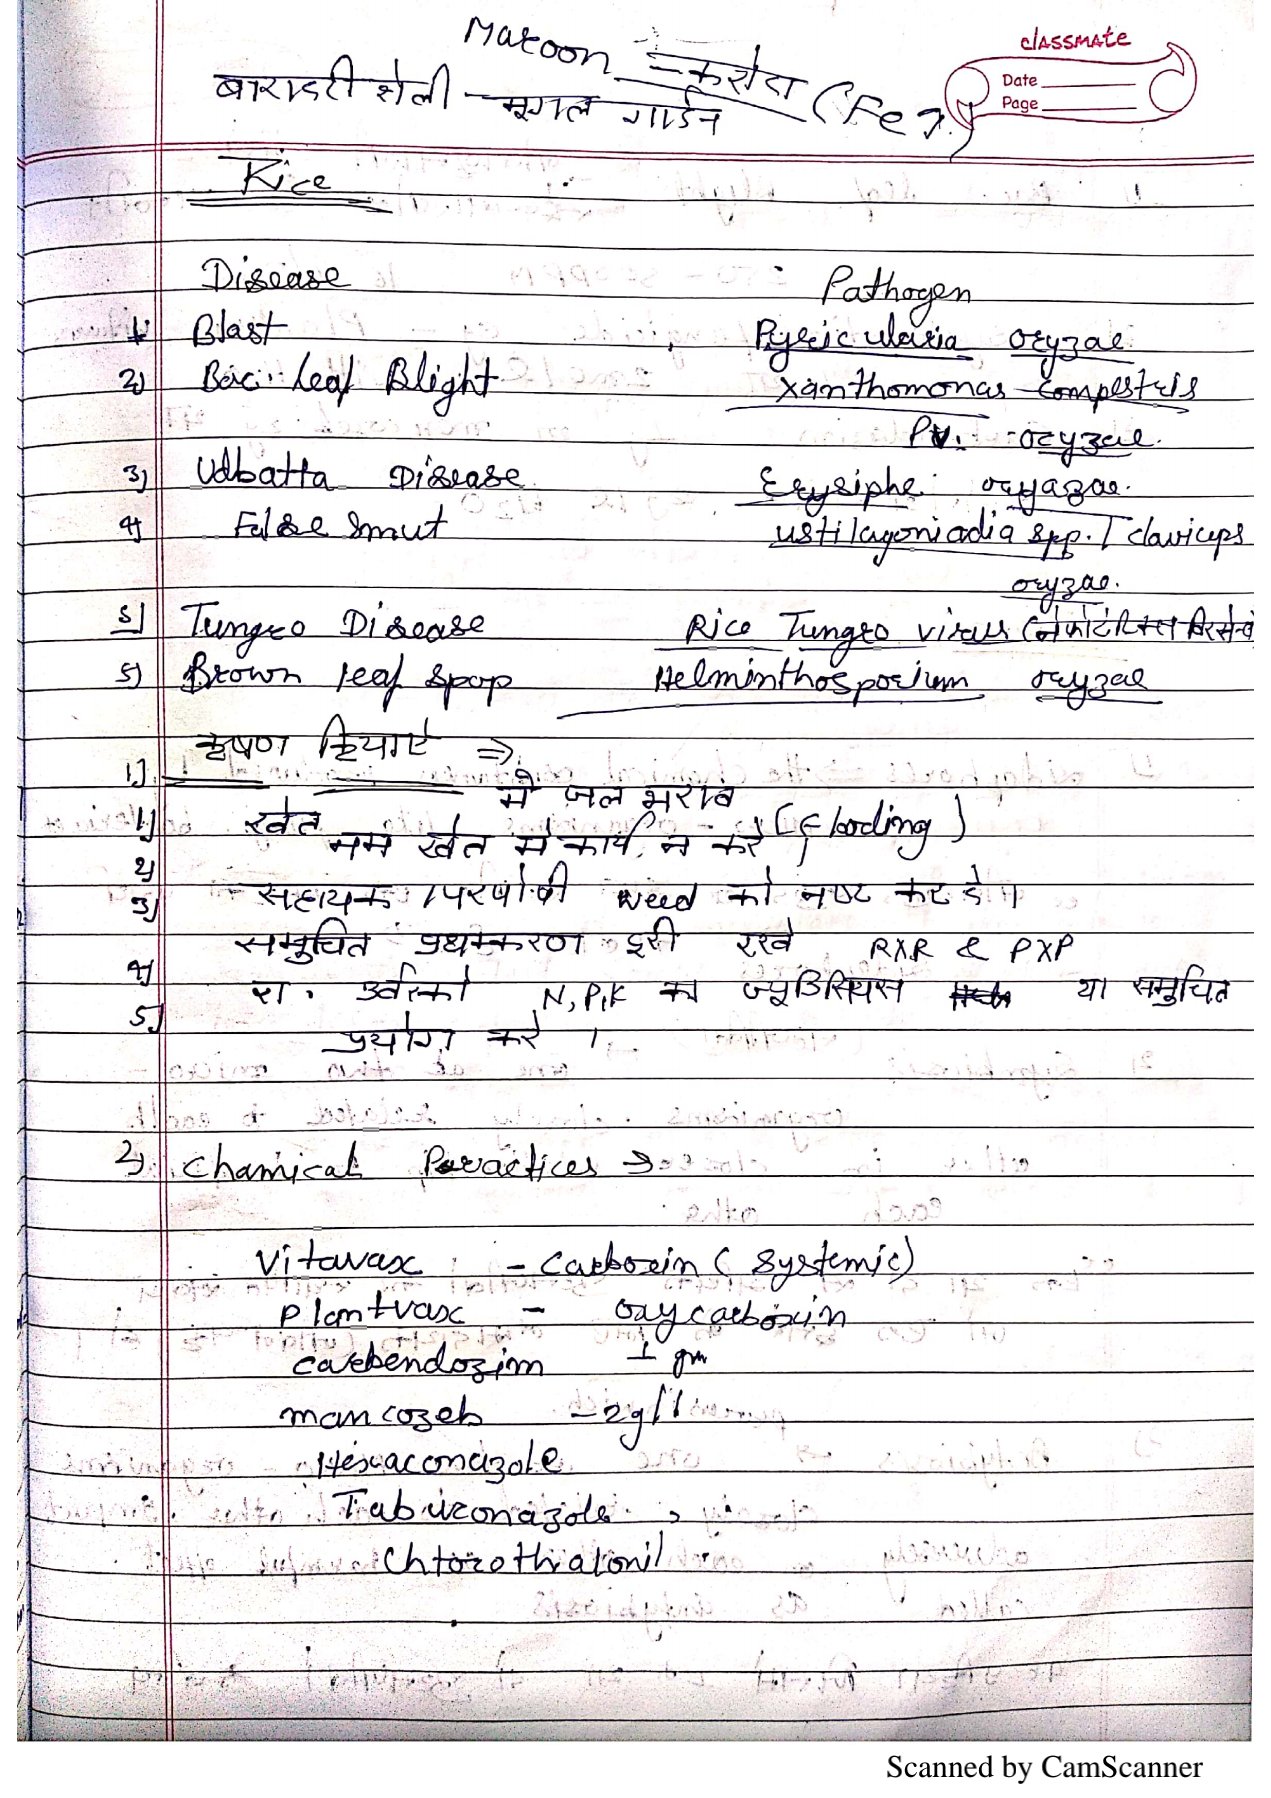 Maroon - करोदा (Fe
classmate
Date
Page
बाराहदरी शैली - मूगल गार्डन
Rice
Disease Pathogen
1. Blast Pyricularia oryzae
2) Bac. leaf Blight Xanthomonas compestris
PV. oryzae.
3) Udbatta Disease Erysiphe oryazae.
4) False smut ustilagoniadia spp. / claviceps
oryzae.
5) Tungro Disease Rice Tungro virus
5) Brown leaf spop Helminthosporium oryzae
1). कृषण क्रियाएं ⇒
1) खेत में जल भराव (Flooding)
2) नम खेत में कार्य न करे।
3) सहायक / परपोषी weed को नष्ट कर दे।
4) समुचित प्रथक्करण दूरी रखे RXR & PXP
5) रा. उर्वरको N,P,K का ज्यूडिसियस या समुचित
प्रयोग करे।
2) Chamical Practices →
Vitavax - Carboxin (Systemic)
Plantvax - oxycarboxin
carbendozim 1 gm
mancozeb - 2g/l
Hexaconazole
Tabuconazole,
Chlorothalonil
Scanned by CamScanner